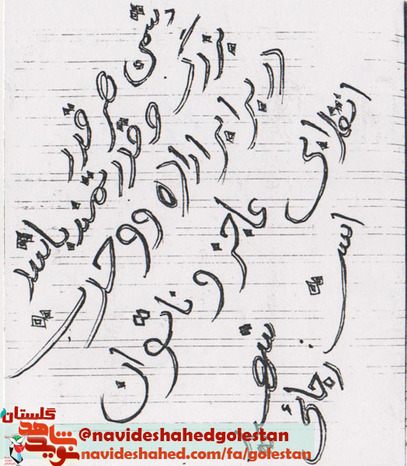 دشمن هر قدر
بزرگ و قدرتمند باشد
در برابر اراده و وحدت
انقلابی عاجز و ناتوان
است
شهید : رجائی
نوید شاهد گلستان
@navideshahedgolestan
navideshahed.com/fa/golestan